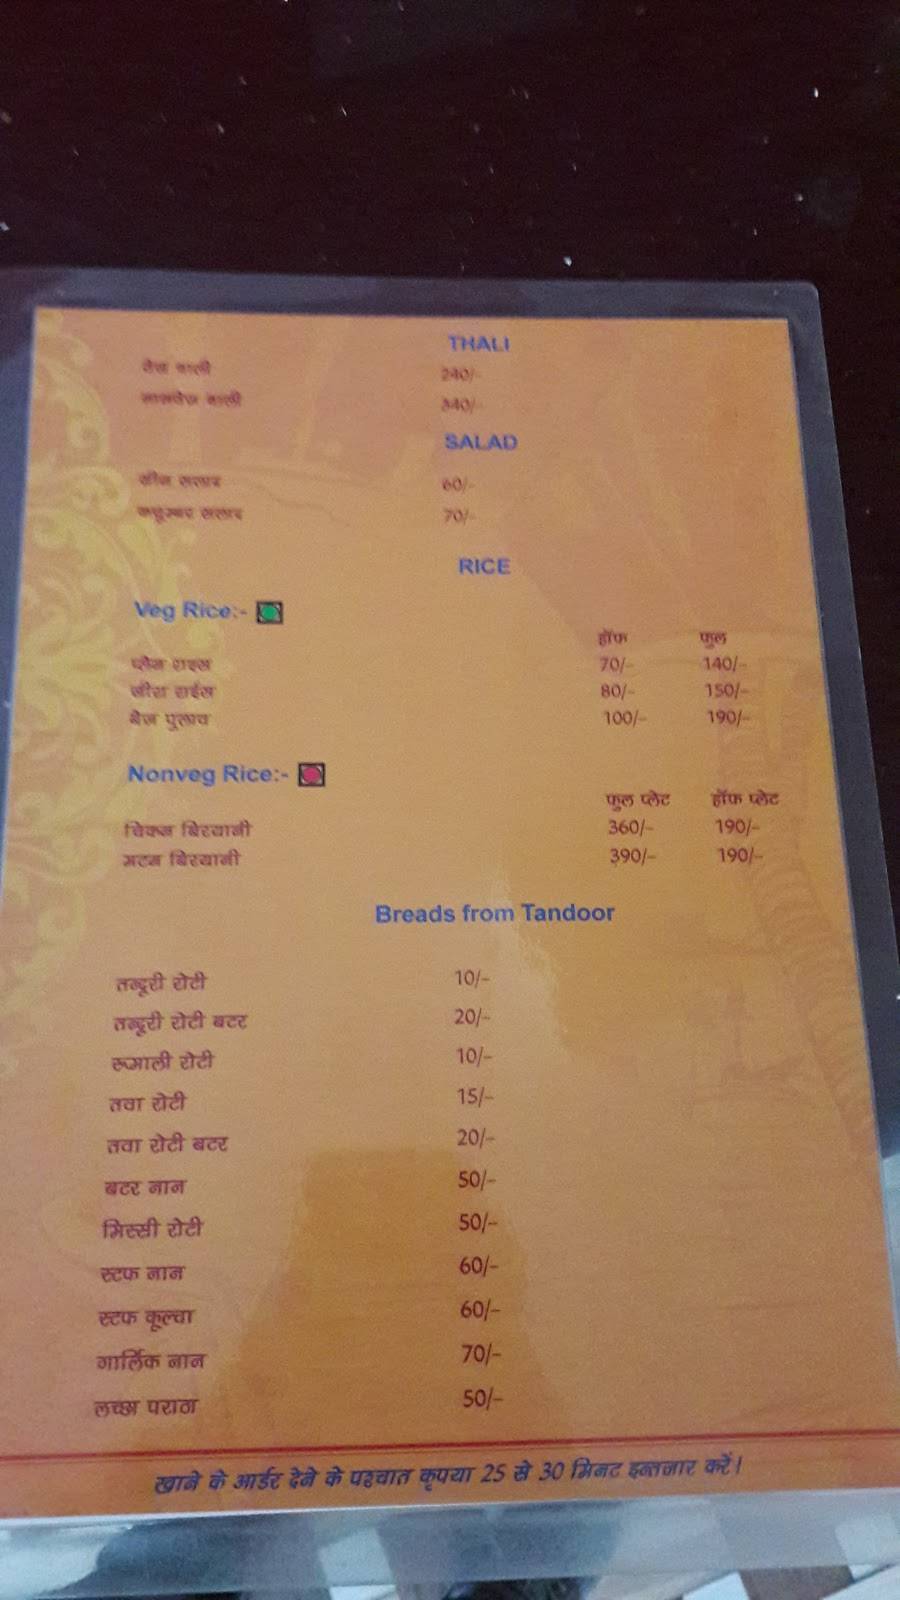 THALI
वेज थाली 240/-
नानवेज थाली 340/-
SALAD
ग्रीन सलाद 60/-
कचूम्बर सलाद 70/-
RICE
Veg Rice:-
हॉफ फुल
प्लैन राइस 70/- 140/-
जीरा राईस 80/- 150/-
वेज पुलाव 100/- 190/-
Nonveg Rice:-
फुल प्लेट हॉफ प्लेट
चिकन बिरयानी 360/- 190/-
मटन बिरयानी 390/- 190/-
Breads from Tandoor
तन्दूरी रोटी 10/-
तन्दूरी रोटी बटर 20/-
रूमाली रोटी 10/-
तवा रोटी 15/-
तवा रोटी बटर 20/-
बटर नान 50/-
मिस्सी रोटी 50/-
स्टफ नान 60/-
स्टफ कूल्चा 60/-
गार्लिक नान 70/-
लच्छा पराठा 50/-
खाने के आर्डर देने के पश्चात कृपया 25 से 30 मिनट इन्तजार करें।